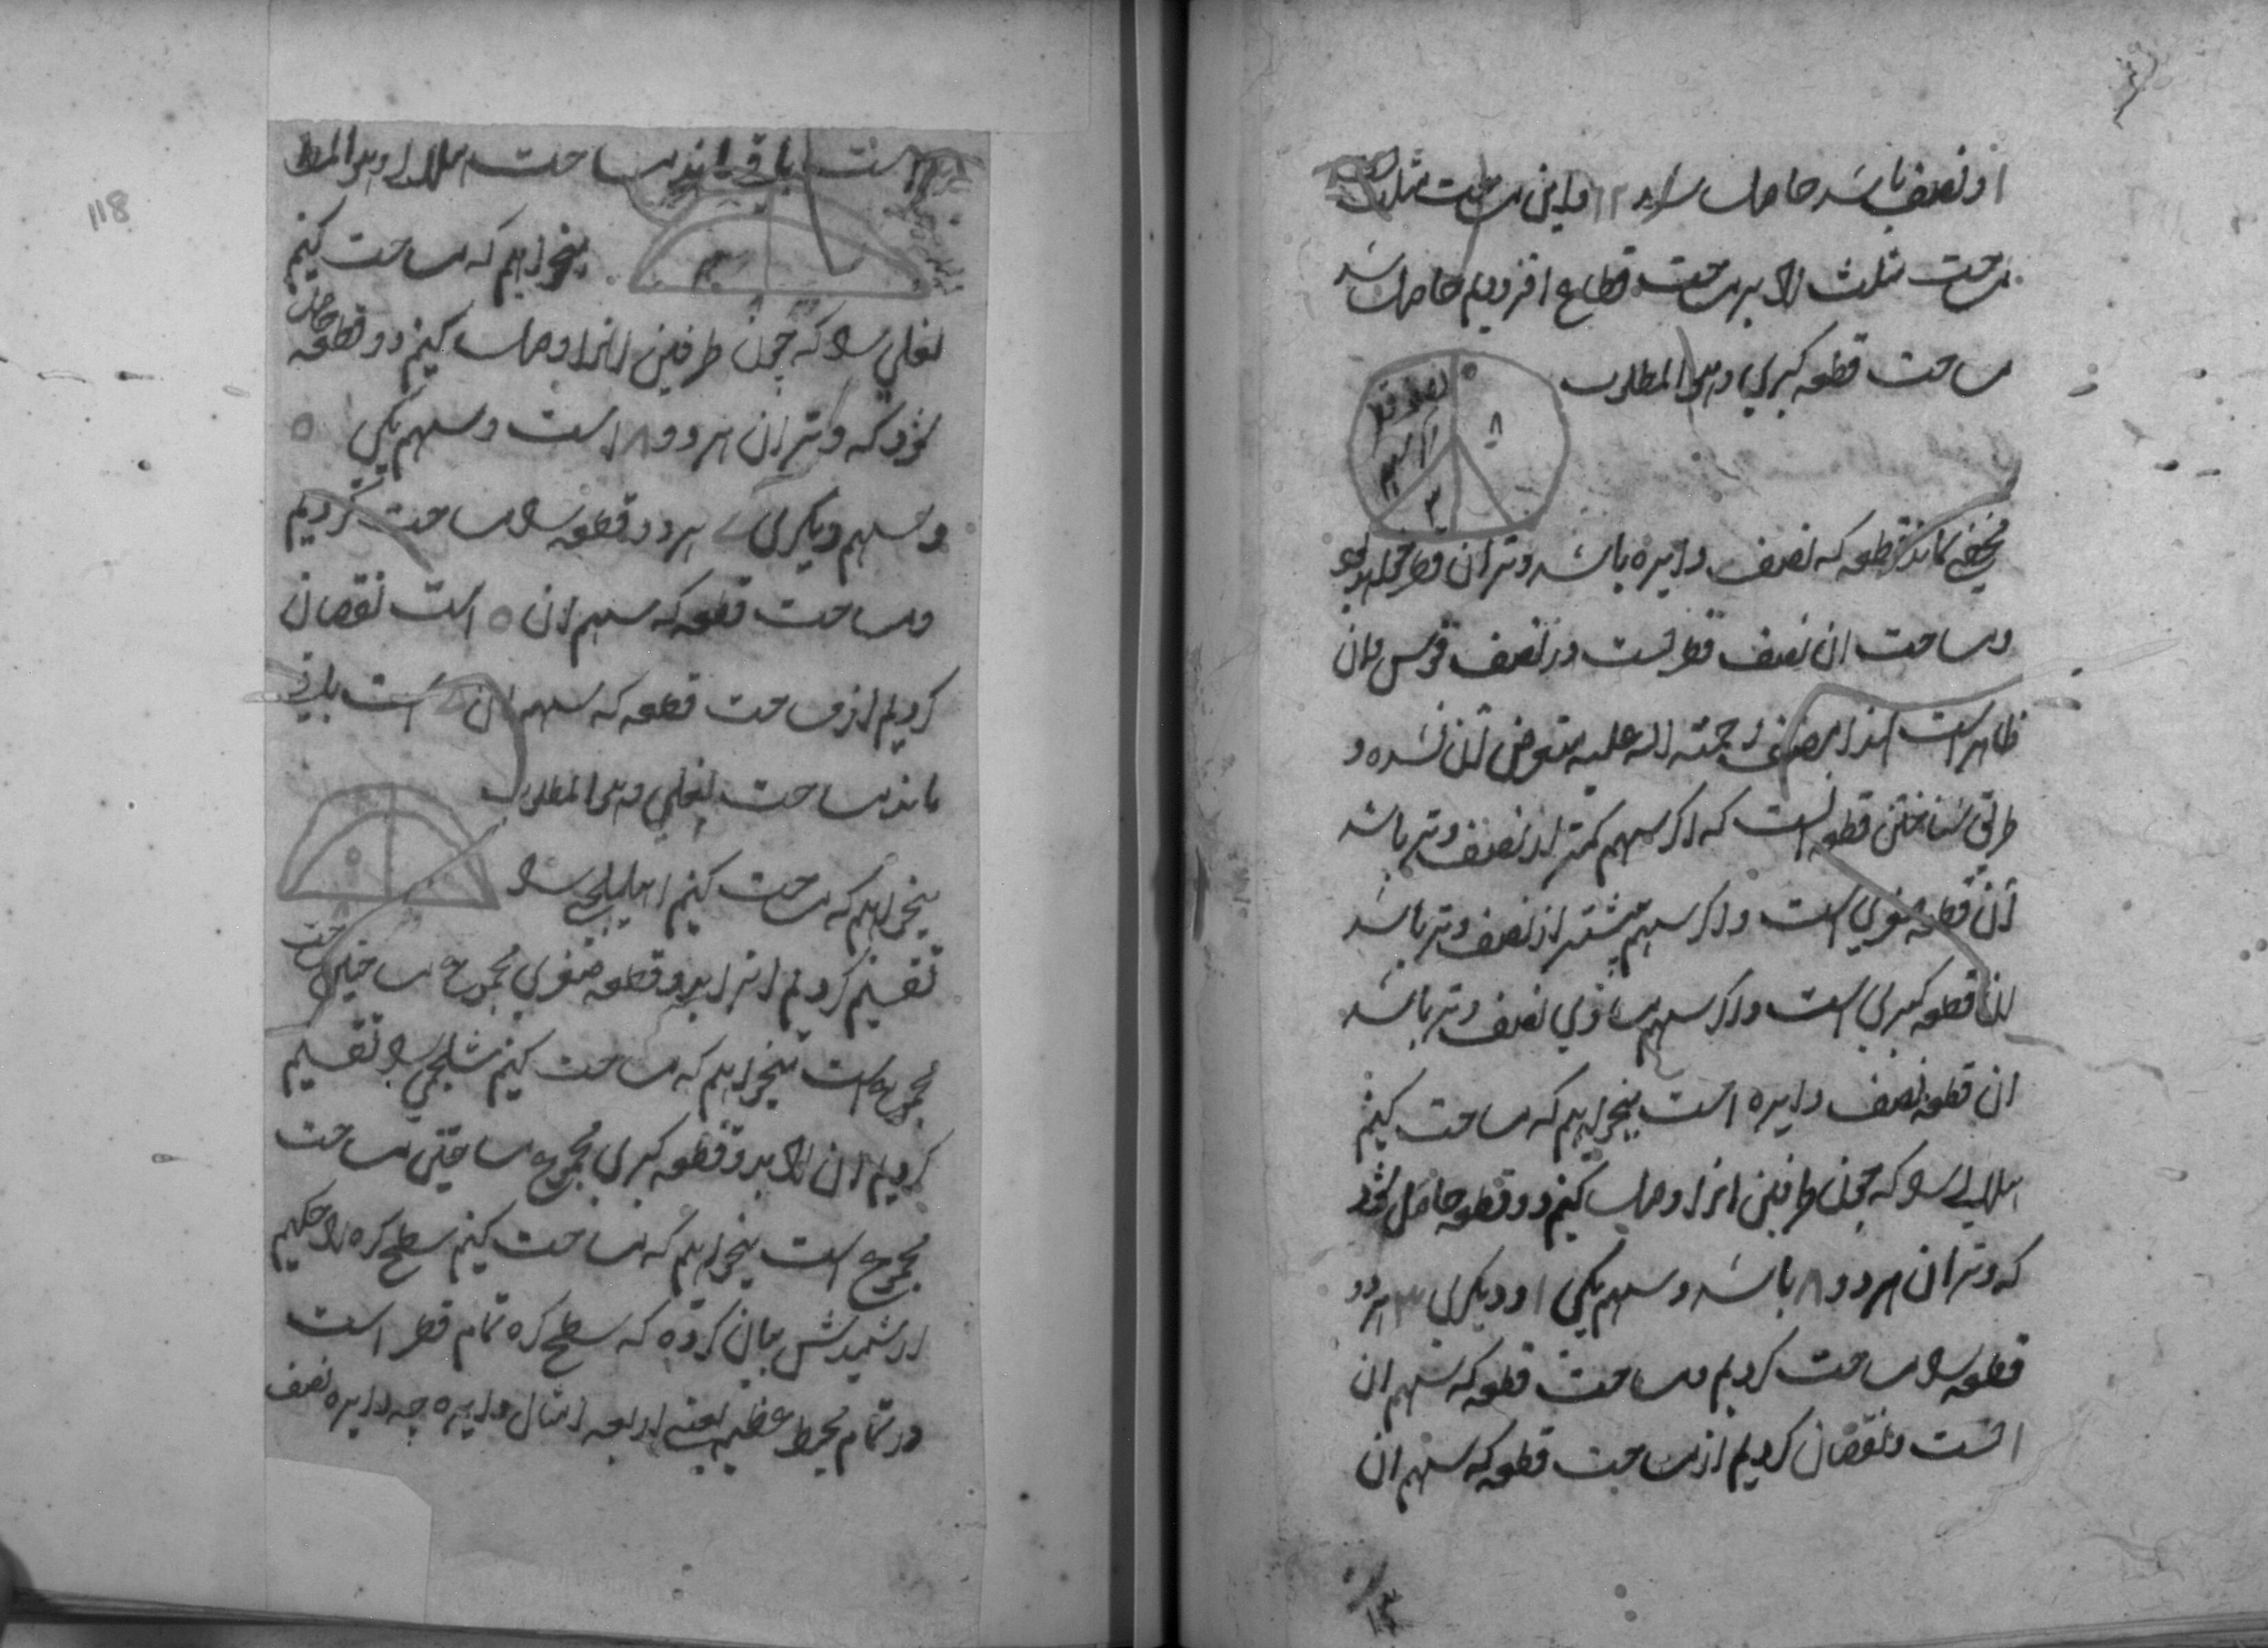 او نصف باشد حاصل شد ۱۲ و این مساحت مثلث
مساحت مثلث را بر مساحت قطاع افزودیم حاصل شد
مساحت قطعه کبری و هو المطلوب
۸
۳
مخفی نماند قطعه که نصف دایره باشد وتر ان قطر
و مساحت ان نصف قطر است در نصف قوس و ان
ظاهر است لهذا مصنف رحمته الله علیه متعرض آن نشده و
طریق شناختن قطعه انست که اکر سهم کمتر از نصف وتر باشد
آن قطعه صغری است و اکر سهم بیشتر از نصف وتر باشد
ان قطعه کبری است و اکر سهم مساوی نصف وتر باشد
ان قطعه نصف دایره است میخواهیم که مساحت کنیم
هلالی را که چون طرفین انرا وصل کنیم دو قطعه حاصل شود
که وتر ان هر دو ۸ باشد و سهم یکی ۱ و دیکری ۳ هر دو
قطعه را مساحت کردیم و مساحت قطعه که سهم ان
۱ است و نقصان کردیم از مساحت قطعه که سهم ان
است باقی ماند مساحت هلال و هو المط
میخواهیم که مساحت کنیم
نعلی را که چون طرفین انرا وصل کنیم دو قطعه حاصل
شود که وتر ان هر دو ۸ است و سهم یکی ۵
و سهم دیکری هر دو قطعه را مساحت کردیم
و مساحت قطعه که سهم ان ۵ است نقصان
کردیم از مساحت قطعه که سهم ان است باقی
ماند مساحت نعلی و هو المطلوب
۵
میخواهیم که مساحت کنیم اهلیلجی را
تقسیم کردیم انرا بدو قطعه صغری مجموع مساحتین مساحت
مجموع است میخواهیم که مساحت کنیم شلجمی را تقسیم
کردیم ان را بدو قطعه کبری مجموع مساحتین مساحت
مجموع است میخواهیم که مساحت کنیم سطح کره را حکیم
ارشمیدش بیان کرده که سطح کره تمام قطر است
در تمام محیط عظیمه یعنی اربعه امثال دایره چه دایره نصف
118